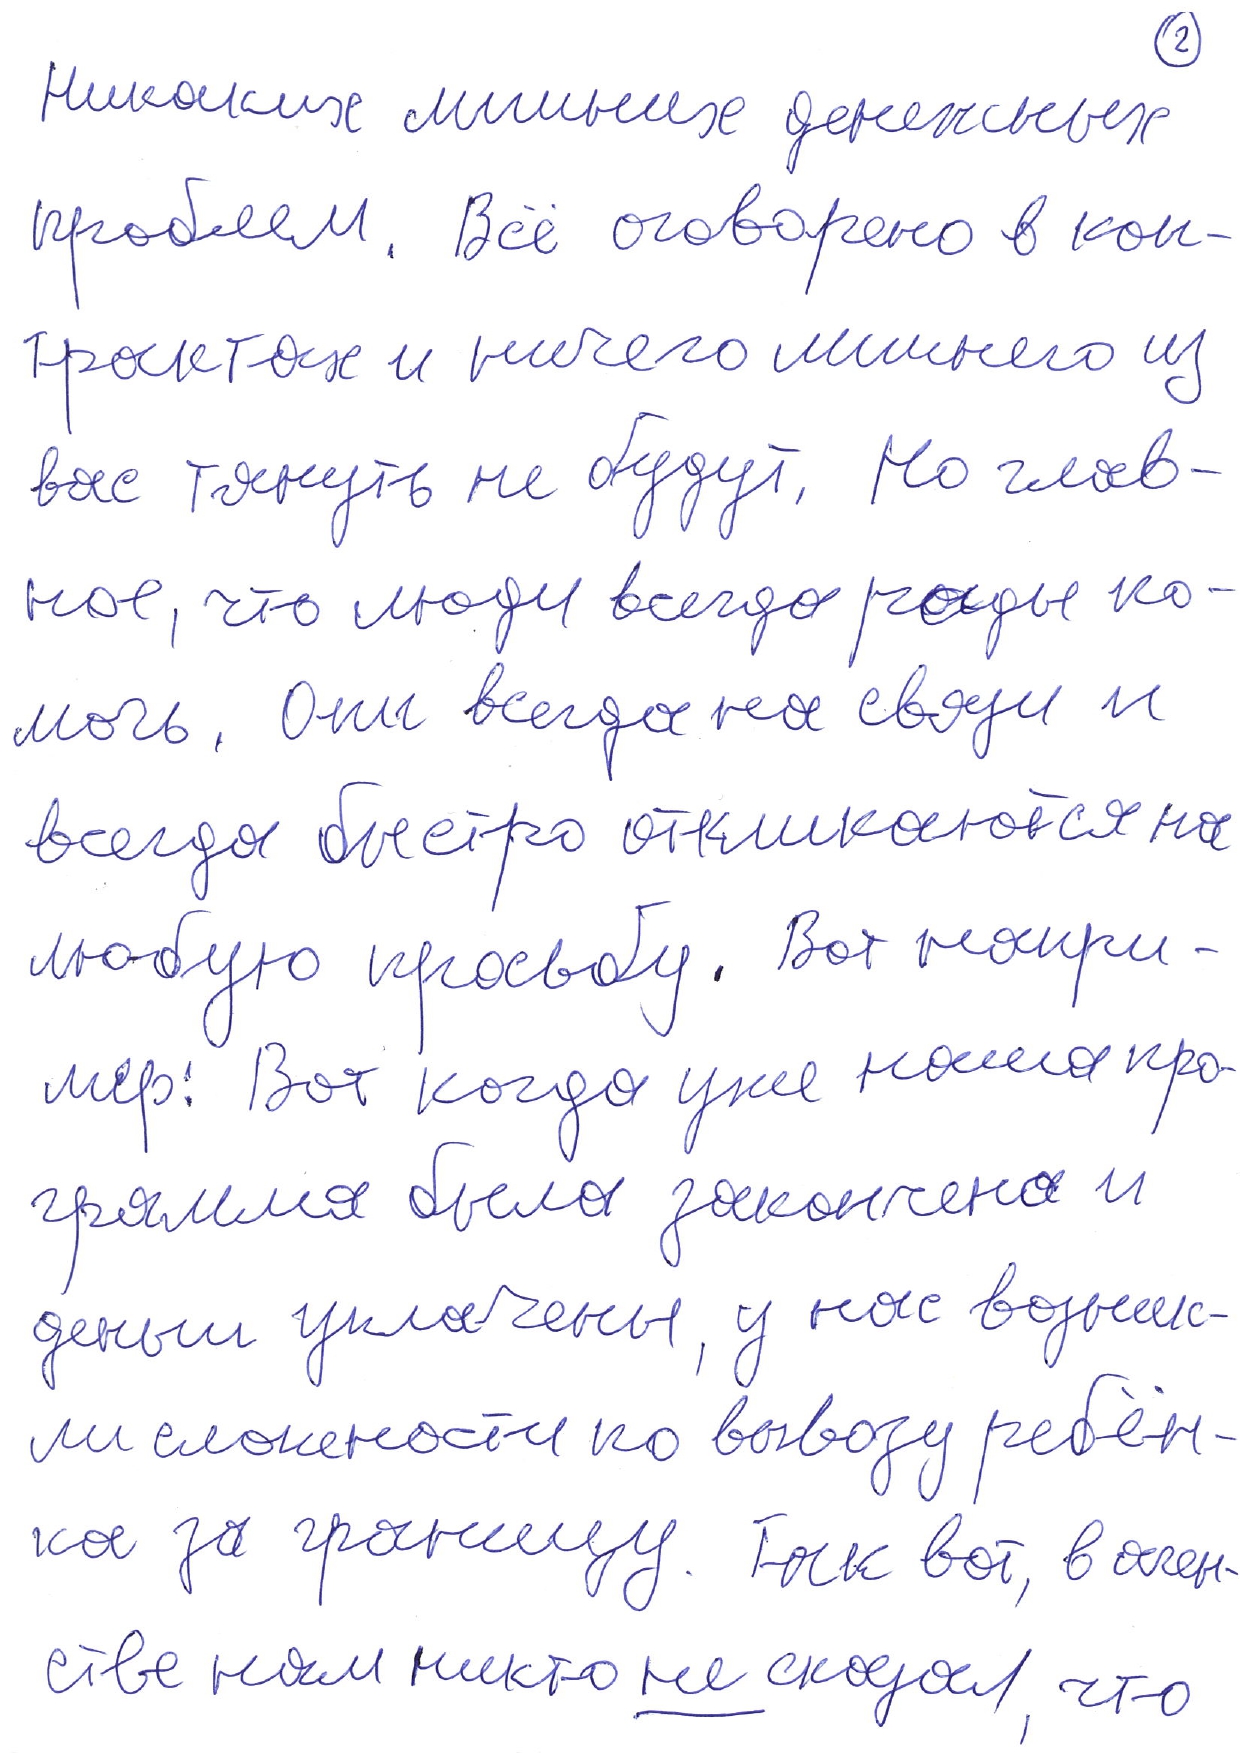 2
Никаких лишних денежных
проблем. Всё оговорено в кон-
трактах и ничего лишнего из
вас тянуть не будут. Но глав-
ное, что люди всегда рады по-
мочь. Они всегда на связи и
всегда быстро откликаются на
любую просьбу. Вот напри-
мер: Вот когда уже наша про-
грамма была закончена и
деньги уплачены, у нас возник-
ли сложености по вывозу ребён-
ка за границу. Так вот, в аген-
стве нам никто не сказал, что